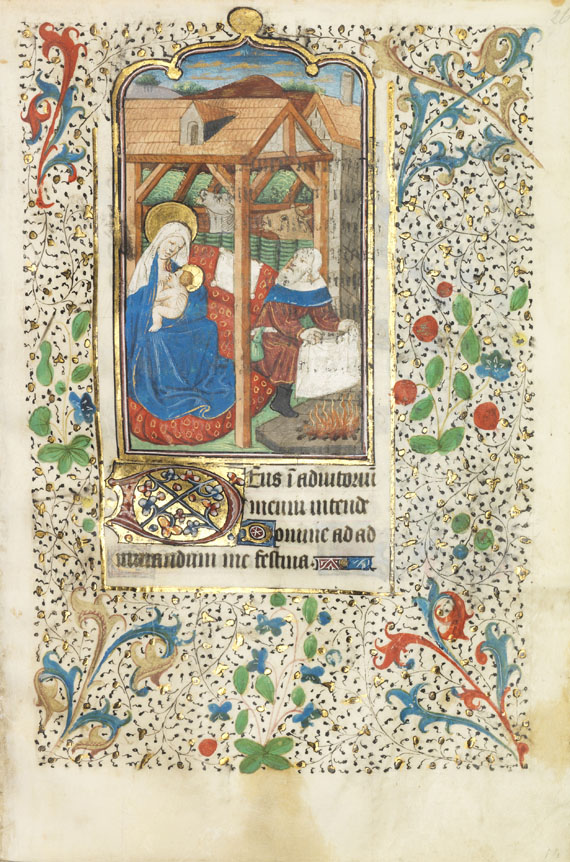 Deus ī adiutoriu
meum intende
Domine ad ad
iuuandum me festina.